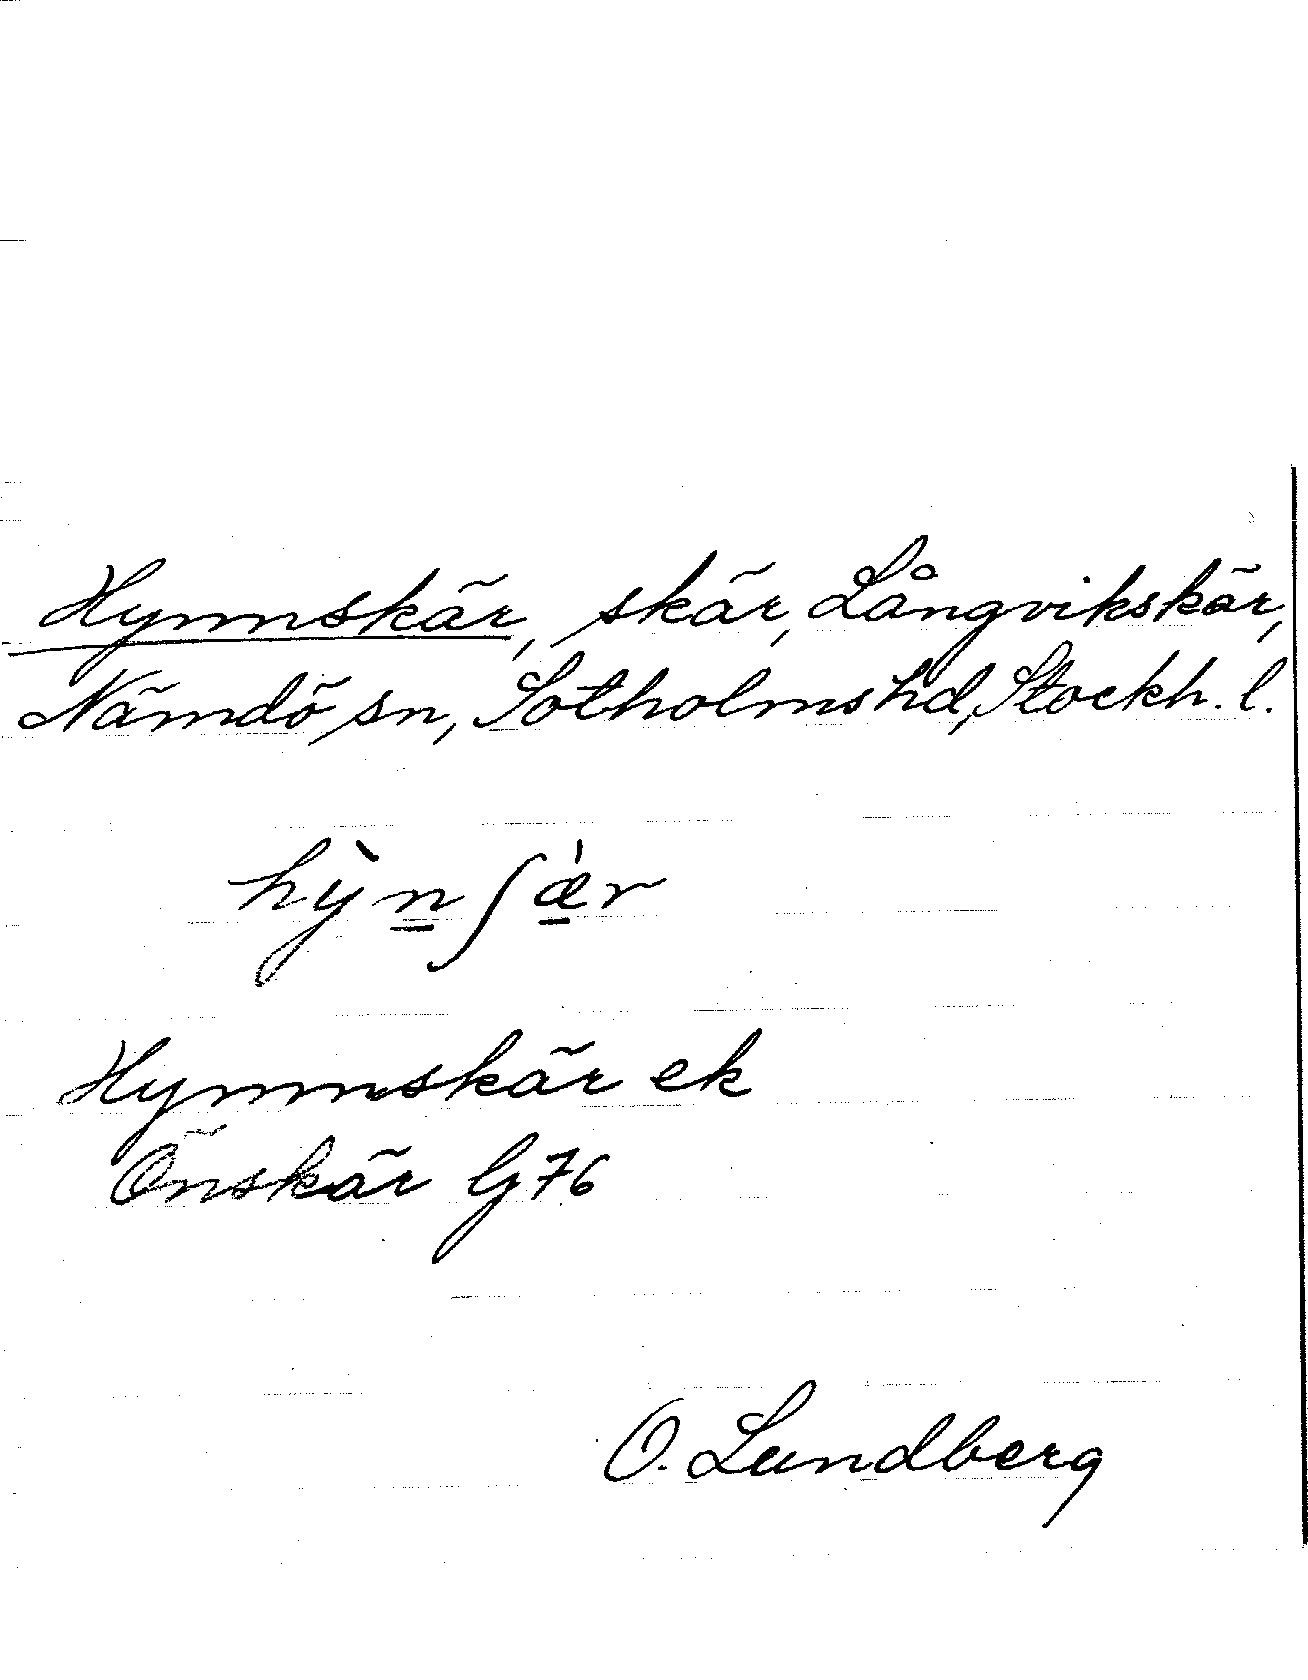 Hynnskär, skär, Långvikskär,
Nämdö sn, Sotholms hd, Stockh. l.
hỳn̲ʃæ̲̀r
Hynnskär ek
Önskär G76
O. Lundberg